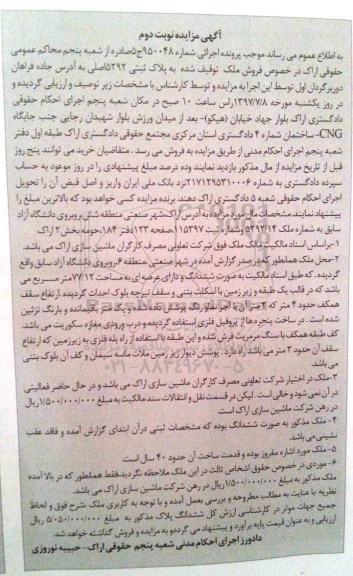 آگهی مزایده نوبت دوم
به اطلاع عموم می رساند موجب پرونده اجرائی شماره ۹۵۰۰۴۸ج۵صادره از شعبه پنجم محاکم عمومی
حقوقی اراک در خصوص فروش ملک توقیف شده به پلاک ثبتی ۵۳۹۲اصلی به آدرس جاده فراهان
دوربرگردان اول توسط این اجرا به مزایده و توسط کارشناس با مشخصات زیر توصیف و ارزیابی گردیده و
در روز یکشنبه مورخه ۱۳۹۷/۷/۸راس ساعت ۱۰ صبح در مکان شعبه پنجم اجرای احکام حقوقی
دادگستری اراک بلوار جهاد خیابان (هپکو)- بعد از میدان ورزش بلوار شهیدان رجایی جنب جایگاه
CNG- ساختمان شماره ۲ دادگستری استان مرکزی مجتمع حقوقی دادگستری اراک طبقه اول دفتر
شعبه پنجم اجرای احکام مدنی از طریق مزایده به فروش می رسد . متقاضیان خرید می توانند پنج روز
قبل از تاریخ مزایده از مال مذکور بازدید نمایند وده درصد مبلغ پیشنهادی را در روز موعود به حساب
سپرده دادگستری به شماره ۲۱۷۱۲۹۵۳۱۰۰۶نزد بانک ملی ایران واریز و اصل فیض آن را تحویل
اجرای احکام حقوقی شعبه ۵ دادگستری اراک دهند. برنده مزایده کسی خواهد بود که بالاترین مبلغ را
پیشنهاد نمایند.مشخصات مال مورد مزایده به آدرس اراک شهر صنعتی منطقه شش روبروی دانشگاه آزاد
سابق به شماره ملک ۵۲۹۲/۱۴ وشماره ثبت ۱۱۵۳۹۷ صفحه ۱۲۳دفتر ۱۸۴حومه بخش۲ اراک
۱-براساس اسناد مالکیت مالک ملک فوق شرکت تعاونی مصرف کارگران ماشین سازی اراک می باشد.
۲-محل ملک همانطور که در صدر گزارش آمده در شهر صنعتی منطقه ۶ روبروی دانشگاه آزاد سابق واقع
گردیده . که طبق اسناد مالکیت به صورت ششدانگ و دارای عرصه ای به مساحت ۷۷۱۲متر مربع می
باشد که در قالب یک طبقه و زیر زمین با اسکلت بتنی و سقف تیرچه بلوک احداث گردیده. ارتفاع سقف
همکف حدود ۴ متر که ۳متر آن با آجر نما و رنگ پوشش داده شده و یک متر باقیمانده و بارنگ تزئین
شده است . در ساخت پنجره ها از پروفیل فلزی استفاده گردیده و درب ورودی مغازه سکوریت می باشد.
کف طبقه همکف با سنگ مرمریت فرش شده و این طبقه با استفاده از راه پله فلزی به زیرزمین که ارتفاع
سقف آن حدود ۳ متر می باشد راه دارد . پوشش دیوار زیر زمین ملات ماسه سیمان و کف آن بلوک بتنی
می باشد
۳-ملک در اختیار شرکت تعاونی مصرف کارگران ماشین سازی اراک می باشد و در حال حاضر فعالیتی
در آن نمی شود و خالی است. لیکن در قسمت نقل و انتقالات سند مالکیت به مبلغ ۱/۵۰۰/۰۰۰/۰۰۰ریال
در رهن شرکت ماشین سازی اراک است.
۴- ملک مذکور به صورت ششدانگ بوده که مشخصات ثبتی درآن ابتدای گزارش آمده و فاقد عقب
نشینی می باشد.
۵-ملک مورد اشاره مفروز بوده و قدمت ساخت آن حدود ۴۰ سال است
۶-موردی در خصوص حقوق اشخاص ثالث در این ملک ملاحظه نگردید.فقط همانطور که در بالا آمده
ملک مذکور به مبلغ ۱/۵۰۰/۰۰۰/۰۰۰ ریال در رهن شرکت ماشین سازی اراک می باشد.
نظریه با عنایت به مطالب مطروحه و بررسی بعمل آمده و با توجه به کاربری ملک شرح فوق و لحاظ
جمیع جهات موثر در کارشناسی ارزش کل ششدانگ پلاک مذکور به مبلغ ۵/۰۵۰/۰۰۰/۰۰۰ ریال
ارزیابی و به عنوان قیمت پایه برآورد و پیشنهاد می گرددو به مزایده و فروش گذاشته خواهد شد.
دادورز اجرای احکام مدنی شعبه پنجم حقوقی اراک- حبیبه نوروزی
۰۲۱-۸۸۳۴۹۶۷۰-۵